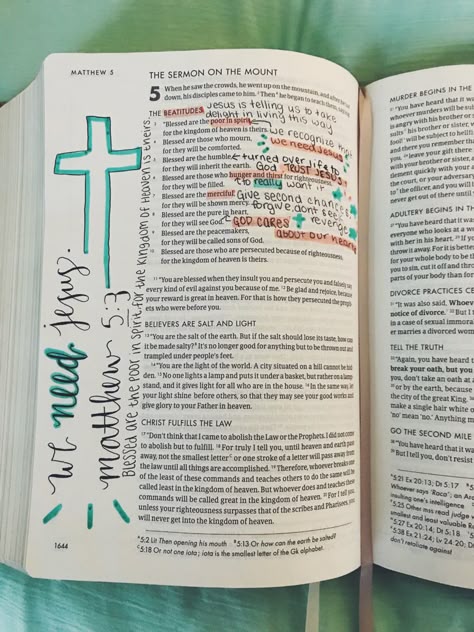 MATTHEW 5
THE SERMON ON THE MOUNT
5 When he saw the crowds, he went up on the mountain, and after he
down, his disciples came to him. ² Then he began to teach them,
THE BEATITUDES
Jesus is telling us to take
delight in living this way
"Blessed are the poor in spirit,
for the kingdom of heaven is theirs.
we recognize that
we need Jesus
Blessed are those who mourn,
for they will be comforted.
Blessed are the humble,
for they will inherit the earth.
turned over life to
God TRUST JESUS
Blessed are those who hunger and thirst for righteousness,
for they will be filled.
to really want it
Blessed are the merciful,
for they will be shown mercy.
Give second chances
forgive, dont seek
revenge
Blessed are the pure in heart,
for they will see God.
GOD CARES
about our hearts
Blessed are the peacemakers,
for they will be called sons of God.
Blessed are those who are persecuted because of righteousness,
for the kingdom of heaven is theirs.
¹¹ "You are blessed when they insult you and persecute you and falsely say
every kind of evil against you because of me. ¹² Be glad and rejoice, because
your reward is great in heaven. For that is how they persecuted the proph-
ets who were before you.
BELIEVERS ARE SALT AND LIGHT
¹³ "You are the salt of the earth. But if the salt should lose its taste, how can
it be made salty? It's no longer good for anything but to be thrown out and
trampled under people's feet.
¹⁴ "You are the light of the world. A city situated on a hill cannot be hid-
den. ¹⁵ No one lights a lamp and puts it under a basket, but rather on a lamp-
stand, and it gives light for all who are in the house. ¹⁶ In the same way, let
your light shine before others, so that they may see your good works and
give glory to your Father in heaven.
CHRIST FULFILLS THE LAW
¹⁷ "Don't think that I came to abolish the Law or the Prophets. I did not come
to abolish but to fulfill. ¹⁸ For truly I tell you, until heaven and earth pass
away, not the smallest letter or one stroke of a letter will pass away from
the law until all things are accomplished. ¹⁹ Therefore, whoever breaks one
of the least of these commands and teaches others to do the same will be
called least in the kingdom of heaven. But whoever does and teaches these
commands will be called great in the kingdom of heaven. ²⁰ For I tell you,
unless your righteousness surpasses that of the scribes and Pharisees, you
will never get into the kingdom of heaven.
5:2 Lit Then opening his mouth 5:13 Or how can the earth be salted?
5:18 Or not one iota; iota is the smallest letter of the Gk alphabet.
1644
we need Jesus.
Matthew 5:3
Blessed are the poor in spirit, for the kingdom of heaven is theirs.
MURDER BEGINS IN THE
²¹ "You have heard that it
ADULTERY BEGINS IN TH
everyone who looks at a wo
with her in his heart.
throw it away. For it is better
for your whole body to be th
you to sin, cut it off and throw
parts of your body than for
DIVORCE PRACTICES CE
³¹ "It was also said, Whoev
notice of divorce. But I
in a case of sexual immora
er marries a divorced wom
TELL THE TRUTH
³³ "Again, you have heard t
break your oath, but you
you, don't take an oath at
or by the earth, because
the city of the great King.
make a single hair white
'no' mean 'no.' Anything m
GO THE SECOND MILE
³⁸ "You have heard that it w
But I tell you, don't resist
5:21 Ex 20:13; Dt 5:17
5:27 Ex 20:14; Dt 5:18
5:38 Ex 21:24; Lv 24:20;
don't retaliate against